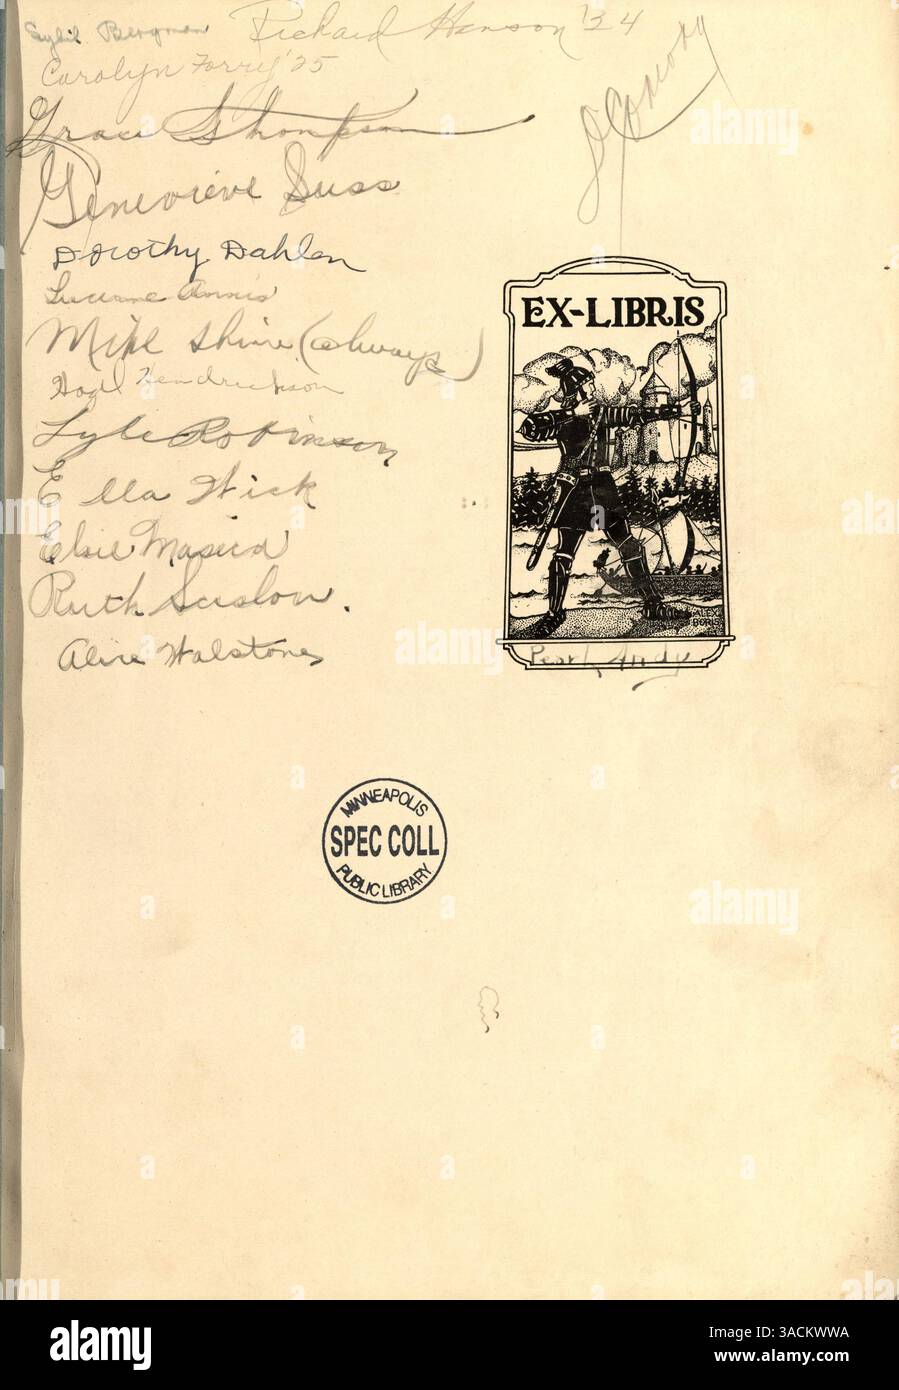 Sybil Bergman Richard Hanson '24
Carolyn Forry '25
J Conroy
Grace Thompson
Genevieve Suss
Dorothy Dahlen
Lucienne Annis
Mike Shine (always)
Hazel Hendrickson
Lyle Robinson
Ella Wick
Elsie
Ruth Suslow.
Alice Walstone
EX-LIBRIS
ALEX
BORIS
Pearl Andy
MINNEAPOLIS
SPEC COLL
PUBLIC LIBRARY
alamy
Image ID: 3ACKWWA
www.alamy.com